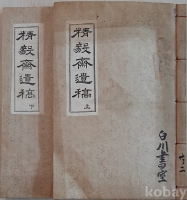 精毅齋遺稿 上
精毅齋遺稿 下
白川書室
kobay